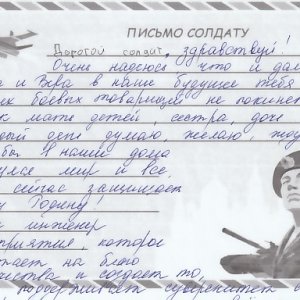 ПИСЬМО СОЛДАТУ
Дорогой солдат, здравствуй!
Очень надеюсь что и дал
а и Вера в наше будущее тебя
их боевых товарищей не покинет
к мать детей сестра, доч
дый день думаю, желаю
бы в наши дома
улся мир и все,
сейчас защищает
у Родину!
инженер
приятия, которое
тает на благо
ства и создает то,
поддерживает суверенитет